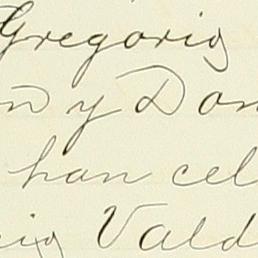 Gregorio
n y Don
han cel
cio Vald